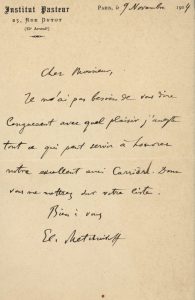 Institut Pasteur
25, Rue Dutot
(XVe Arrondt)
Paris, le 9 Novembre 1904
Cher Monsieur,
Je n'ai pas besoin de vous dire
avec quel plaisir j'accepte
tout ce qui peut servir à honorer
notre excellent ami Carrière. Donc
vous me mettrez sur votre liste.
Bien à vous
El. Metchnikoff